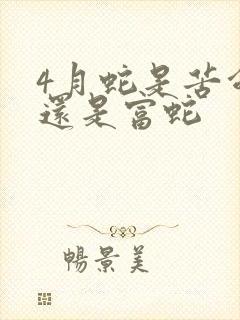 4月蛇是苦命
還是富蛇
暢景美